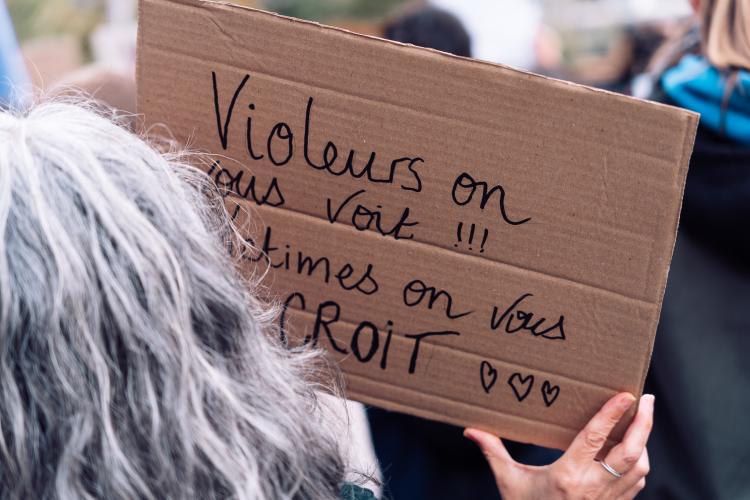 Violeurs on
vous voit !!!
Victimes on vous
CROIT ♡♡♡